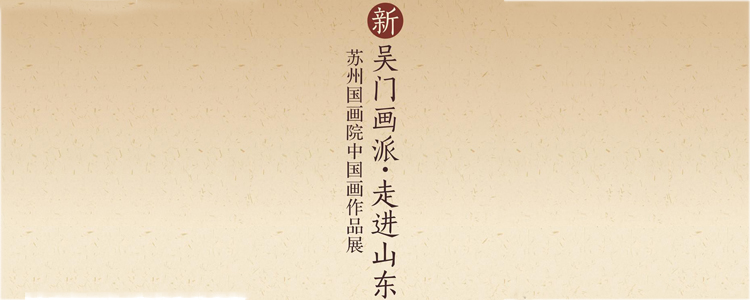 新吴门画派·走进山东
苏州国画院中国画作品展